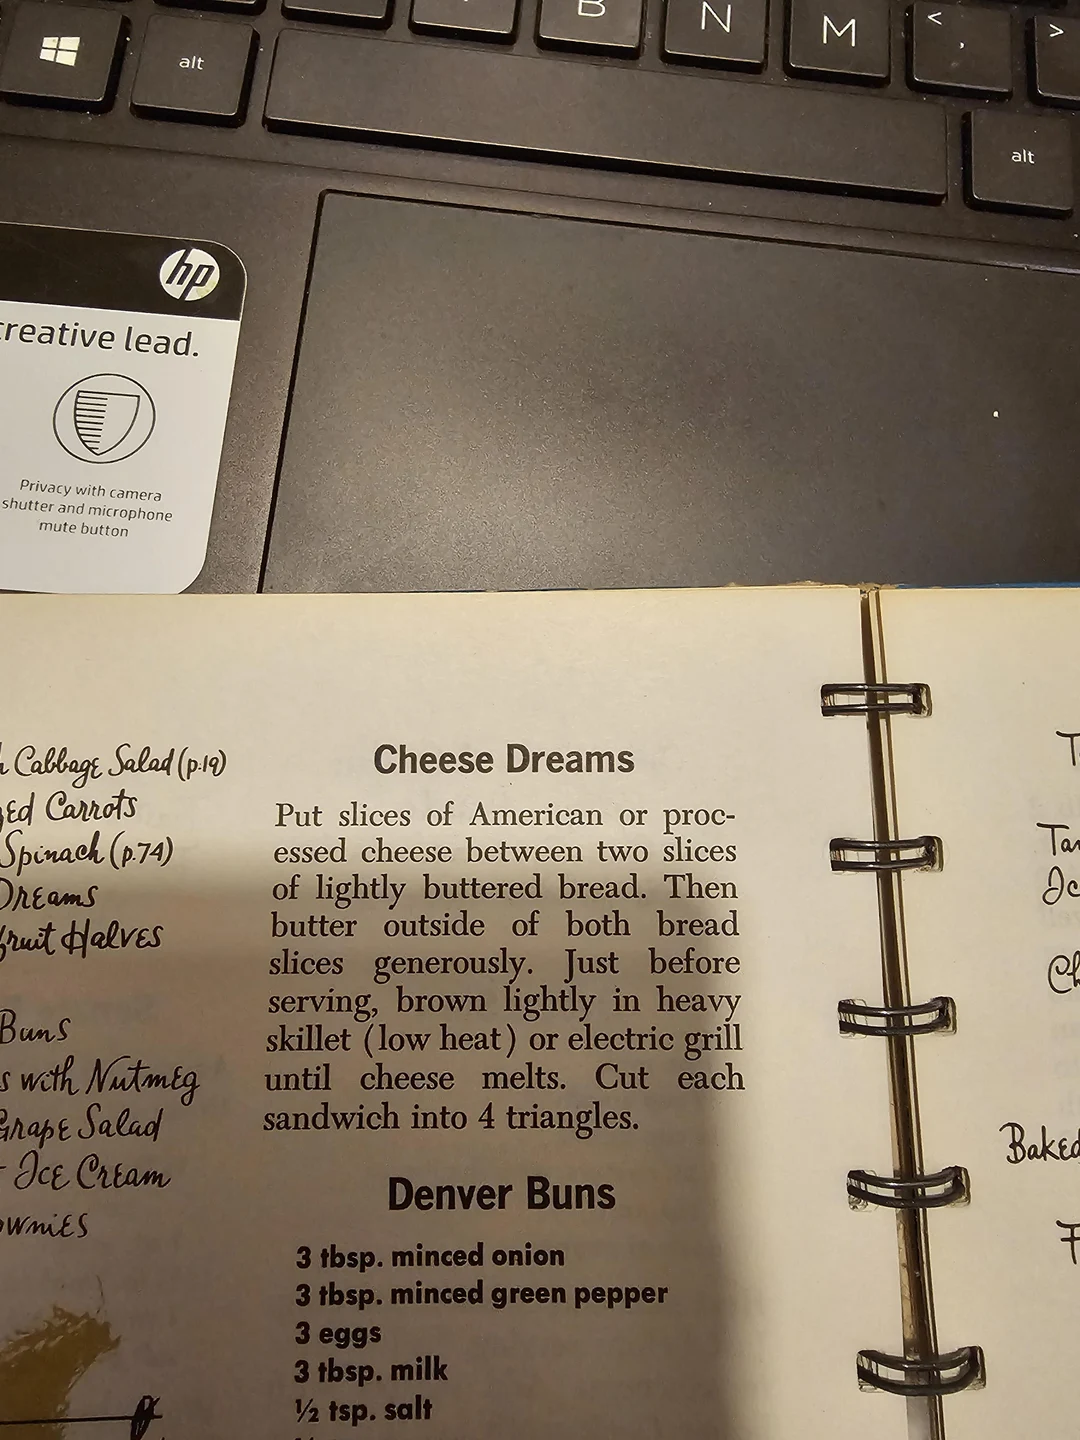 B N M < , >
alt
alt
hp
creative lead.
Privacy with camera
shutter and microphone
mute button
Cabbage Salad (p.19)
Carrots
Spinach (p.74)
Dreams
Halves
Buns
with Nutmeg
Grape Salad
Ice Cream
Cheese Dreams
Put slices of American or proc-
essed cheese between two slices
of lightly buttered bread. Then
butter outside of both bread
slices generously. Just before
serving, brown lightly in heavy
skillet (low heat) or electric grill
until cheese melts. Cut each
sandwich into 4 triangles.
Denver Buns
3 tbsp. minced onion
3 tbsp. minced green pepper
3 eggs
3 tbsp. milk
½ tsp. salt
Baked